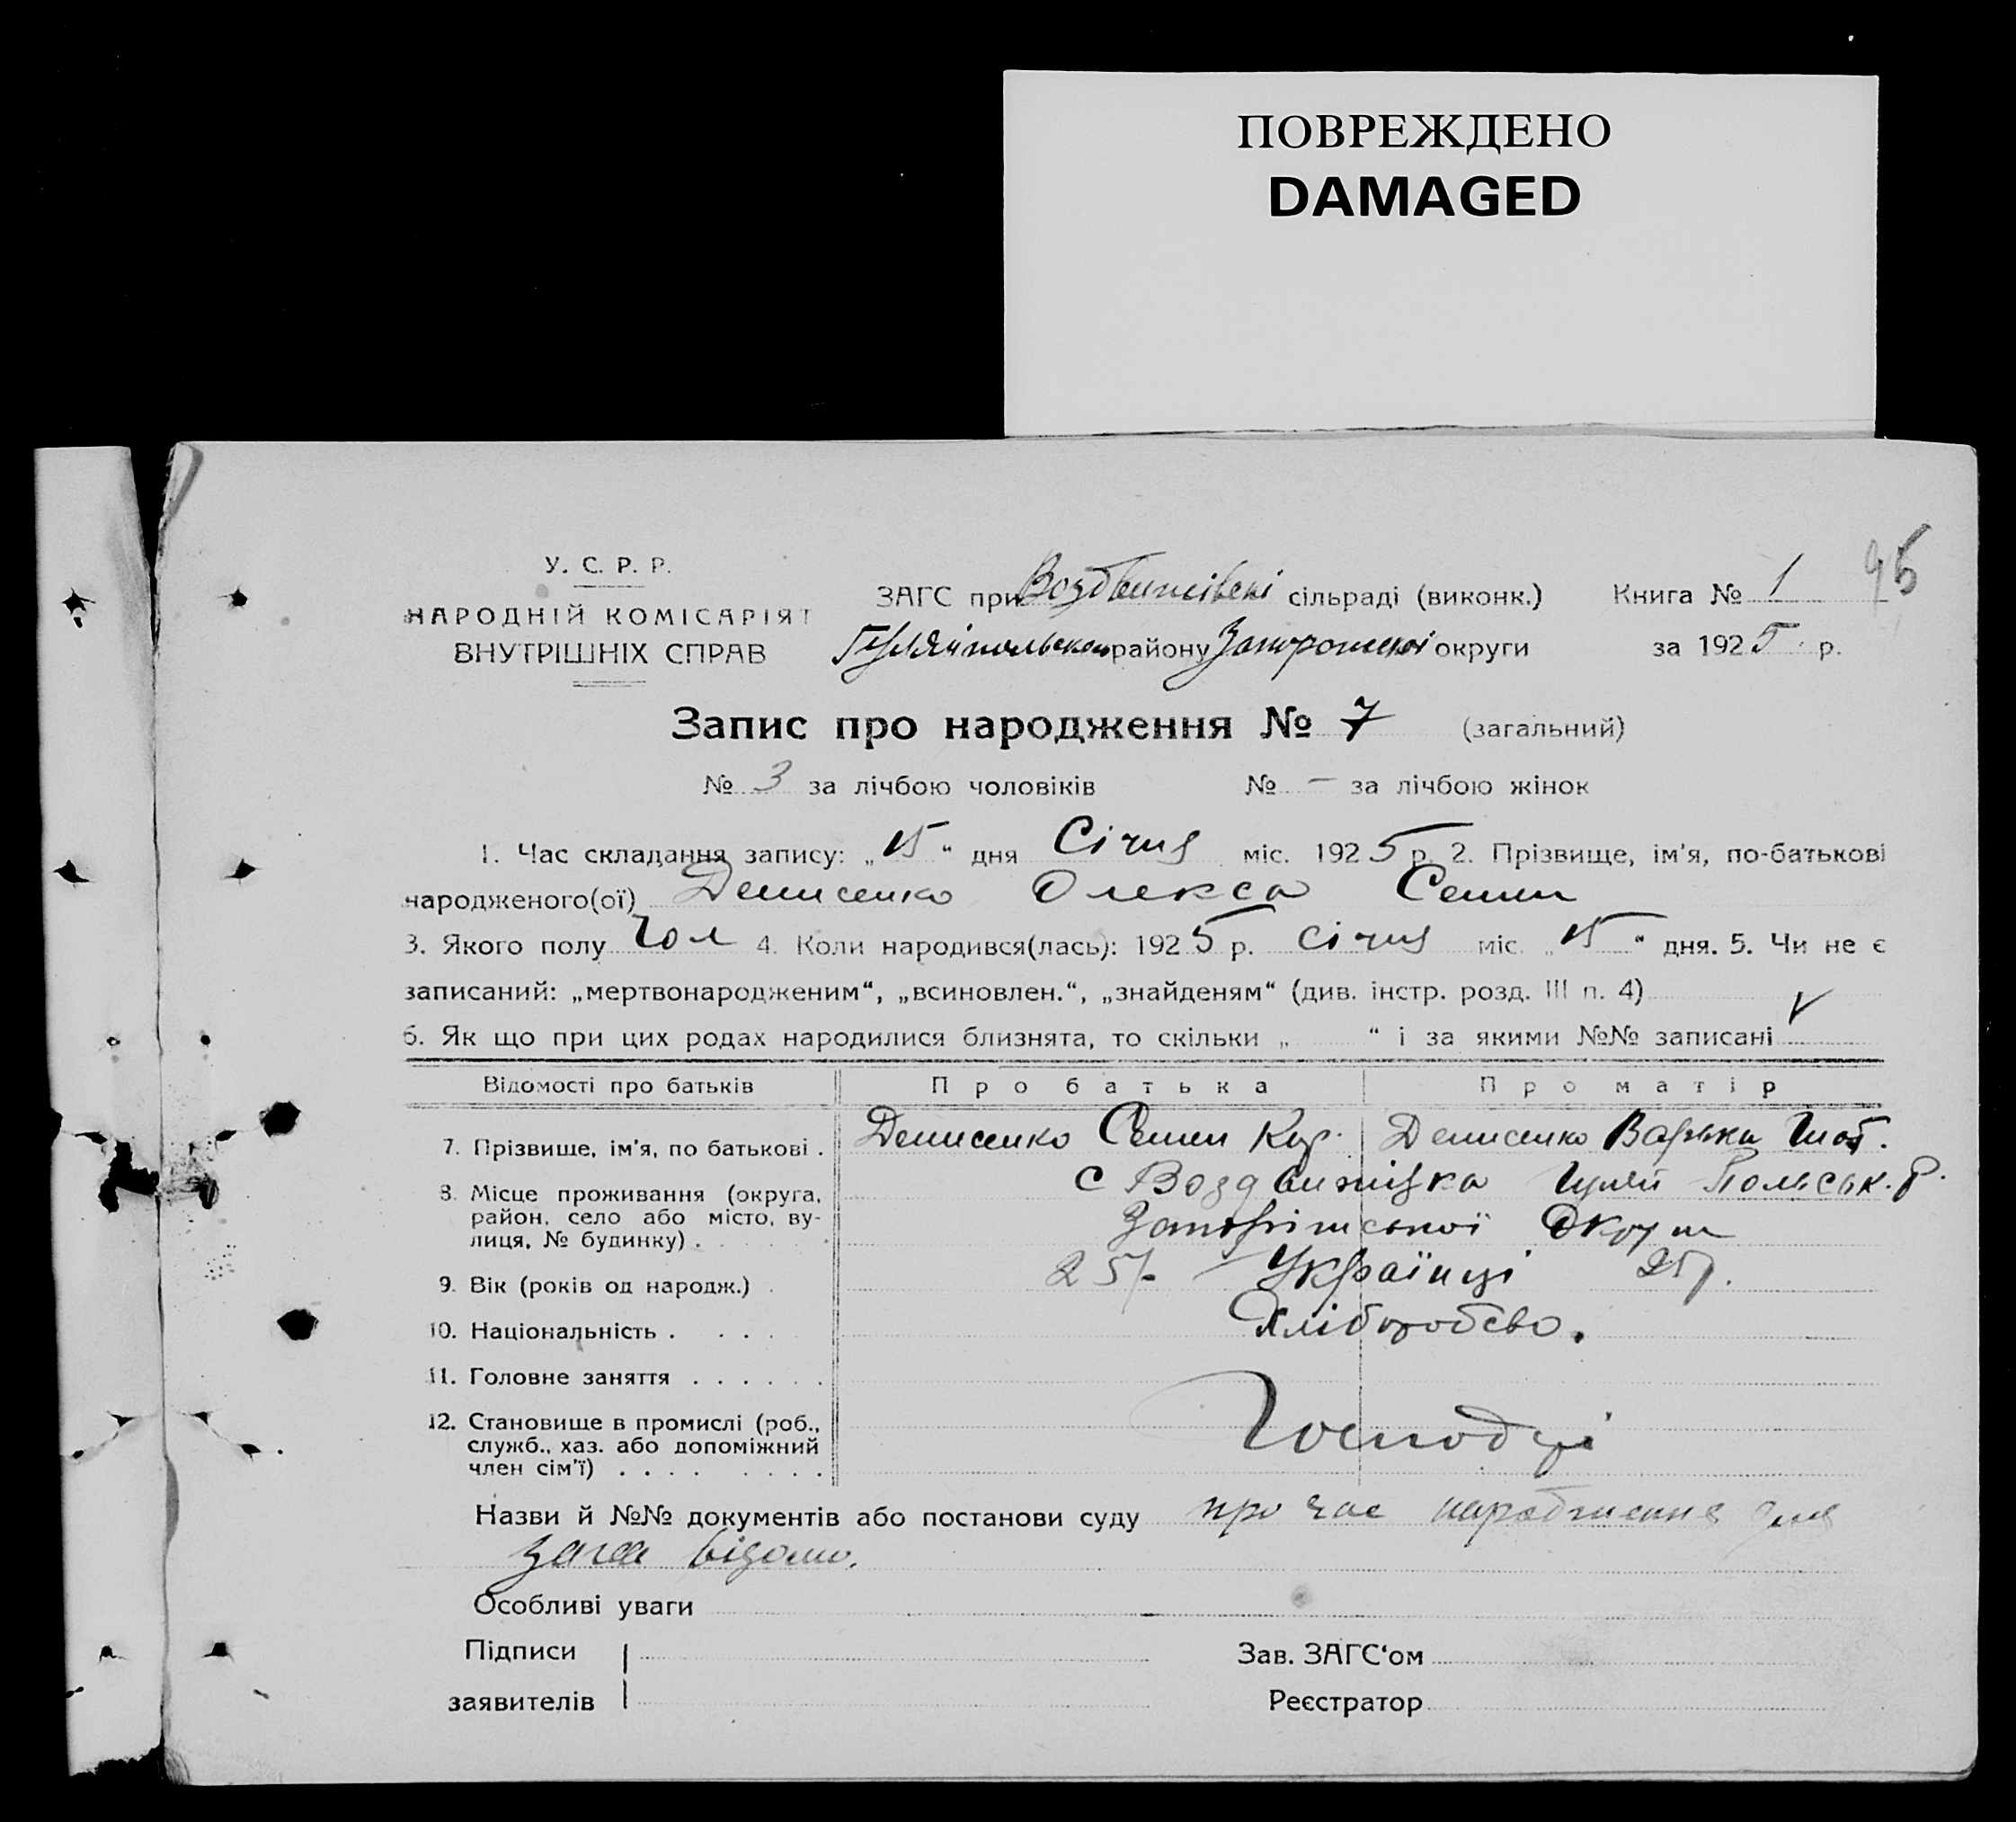 ПОВРЕЖДЕНО
DAMAGED
95
У. С. Р. Р.
НАРОДНІЙ КОМІСАРІЯТ
ВНУТРІШНІХ СПРАВ
ЗАГС при Воздвижівскі сільраді (виконк.) Книга № 1
Гуляйпольском району Запорожскої округи за 1925 р.
Запис про народження № 7 (загальний)
№ 3 за лічбою чоловіків № — за лічбою жінок
1. Час складання запису: „15“ дня Січня міс. 1925 р. 2. Прізвище, ім'я, по-батькові
народженого(ої) Денисенко Олекса Семен
3. Якого полу Чол 4. Коли народився(лась): 1925 р. січня міс. „15“ дня. 5. Чи не є
записаний: „мертвонародженим“, „всиновлен.“, „знайденям“ (див. інстр. розд. III п. 4)
6. Як що при цих родах народилися близнята, то скільки „ “ і за якими №№ записані
Відомості про батьків Про батька Про матір
7. Прізвище, ім'я, по батькові . Денисенко Семен Кур. Денисенко Варька
8. Місце проживання (округа, район, село або місто, вулиця, № будинку) . с Воздвижівка Гуляй Польськ. Р.
Запоріжської Округи
9. Вік (років од народж.) . 25р. Українці 25р.
10. Національність . . . . Хліборобство.
11. Головне заняття . . . . . .
12. Становище в промислі (роб., служб., хаз. або допоміжний член сім'ї) . . . . . . . . Господарі
Назви й №№ документів або постанови суду про час народження для
загса відомо.
Особливі уваги
Підписи Зав. ЗАГС‘ом
заявителів Реєстратор